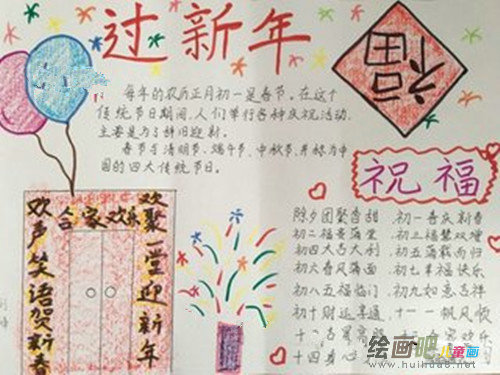 过新年
福
每年的农历正月初一是春节。在这个
传统节日期间,人们举行各种庆祝活动,
主要是为了辞旧迎新。
春节与清明节、端午节、中秋节、并称为中
国的四大传统节日。
祝福
除夕团聚香甜 初一喜庆新春
初二福贵满堂 初三福慧双增
初四大吉大利 初五满载而归
初六春风满面 初七幸福快乐
初八五福临门 初九如意吉祥
初十财运亨通 十一一帆风顺
十二吉星高照 欢乐
十四身心
合家欢乐
欢声笑语贺新春
欢聚一堂迎新年
绘画吧 儿童画